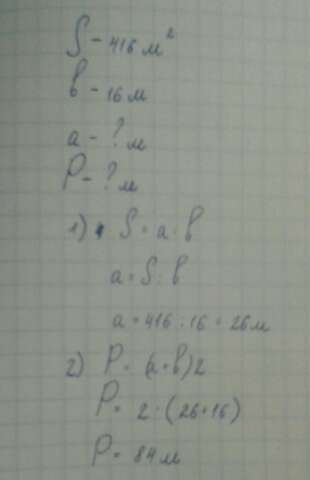 S - 416 м²
в - 16 м
а - ? м
P - ? м
1) S = а · в
а = S : в
а = 416 : 16 = 26 м
2) P = (а + в) 2
P = 2 · (26 + 16)
P = 84 м